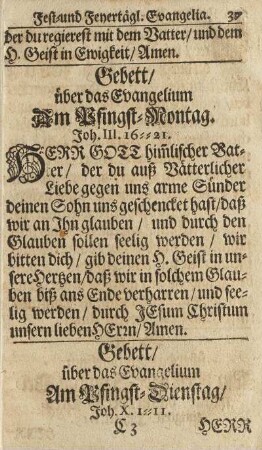 Fest-und Feyertägl. Evangelia. 37
der du regierest mit dem Vatter/ und dem
H. Geist in Ewigkeit/ Amen.
Gebett/
über das Evangelium
Am Pfingst-Montag.
Joh. III. 16--21.
HERR GOTT him̃lischer Vat-
ter/ der du auß Vätterlicher
Liebe gegen uns arme Sünder
deinen Sohn uns geschencket hast/ daß
wir an Ihn glauben/ und durch den
Glauben sollen seelig werden/ wir
bitten dich/ gib deinen H. Geist in un-
sere Hertzen/ daß wir in solchem Glau-
ben biß ans Ende verharren/ und see-
lig werden/ durch JEsum Christum
unsern lieben HErrn/ Amen.
Gebett/
über das Evangelium
Am Pfingst-Dienstag/
Joh. X. 1--11.
C 3 HERR